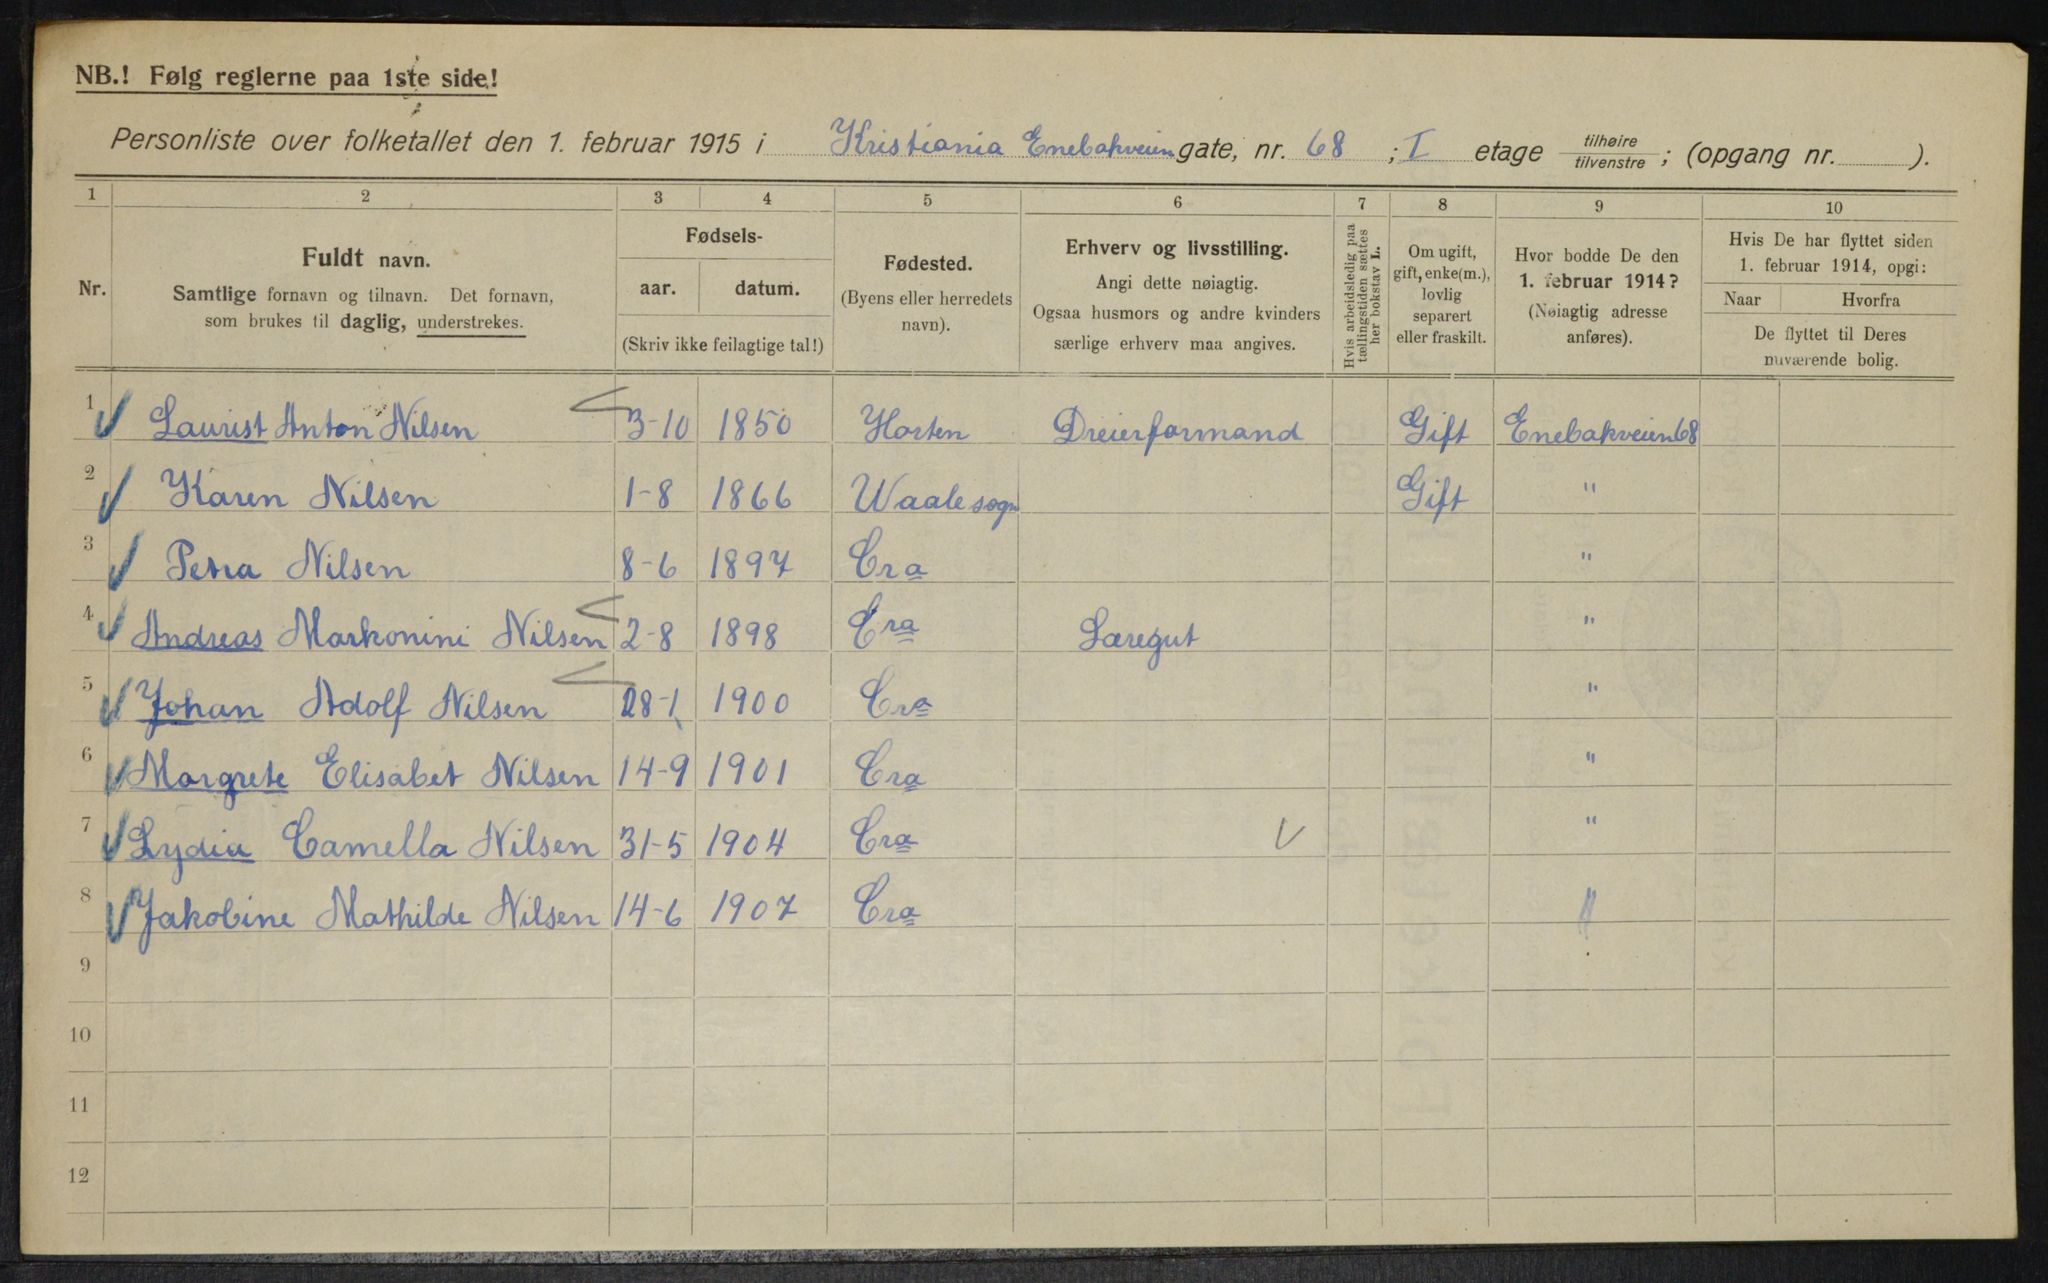 NB.! Følg reglerne paa 1ste side!
Personliste over folketallet den 1. februar 1915 i Kristiania Enebakveien gate, nr. 68 ; I etage tilhøire / tilvenstre ; (opgang nr. ).
1 2 3 4 5 6 7 8 9 10
Nr.
Fuldt navn.
Samtlige fornavn og tilnavn. Det fornavn,
som brukes til daglig, understrekes.
Fødsels-
aar. datum.
(Skriv ikke feilagtige tal!)
Fødested.
(Byens eller herredets
navn).
Erhverv og livsstilling.
Angi dette nøiagtig.
Ogsaa husmors og andre kvinders
særlige erhverv maa angives.
Hvis arbeidsledig paa
tællingstiden sættes
her bokstav L.
Om ugift,
gift, enke(m.),
lovlig
separert
eller fraskilt.
Hvor bodde De den
1. februar 1914?
(Nøiagtig adresse
anføres).
Hvis De har flyttet siden
1. februar 1914, opgi:
Naar Hvorfra
De flyttet til Deres
nuværende bolig.
1 Laurist Anton Nilsen 3-10 1850 Horten Dreierformand Gift Enebakveien 68
2 Karen Nilsen 1-8 1866 Waale sogn Gift "
3 Petra Nilsen 8-6 1897 Cra "
4 Andreas Markonini Nilsen 2-8 1898 Cra Læregut "
5 Johan Adolf Nilsen 28-1 1900 Cra "
6 Margrete Elisabet Nilsen 14-9 1901 Cra "
7 Lydia Camella Nilsen 31-5 1904 Cra "
8 Jakobine Mathilde Nilsen 14-6 1907 Cra "
9
10
11
12